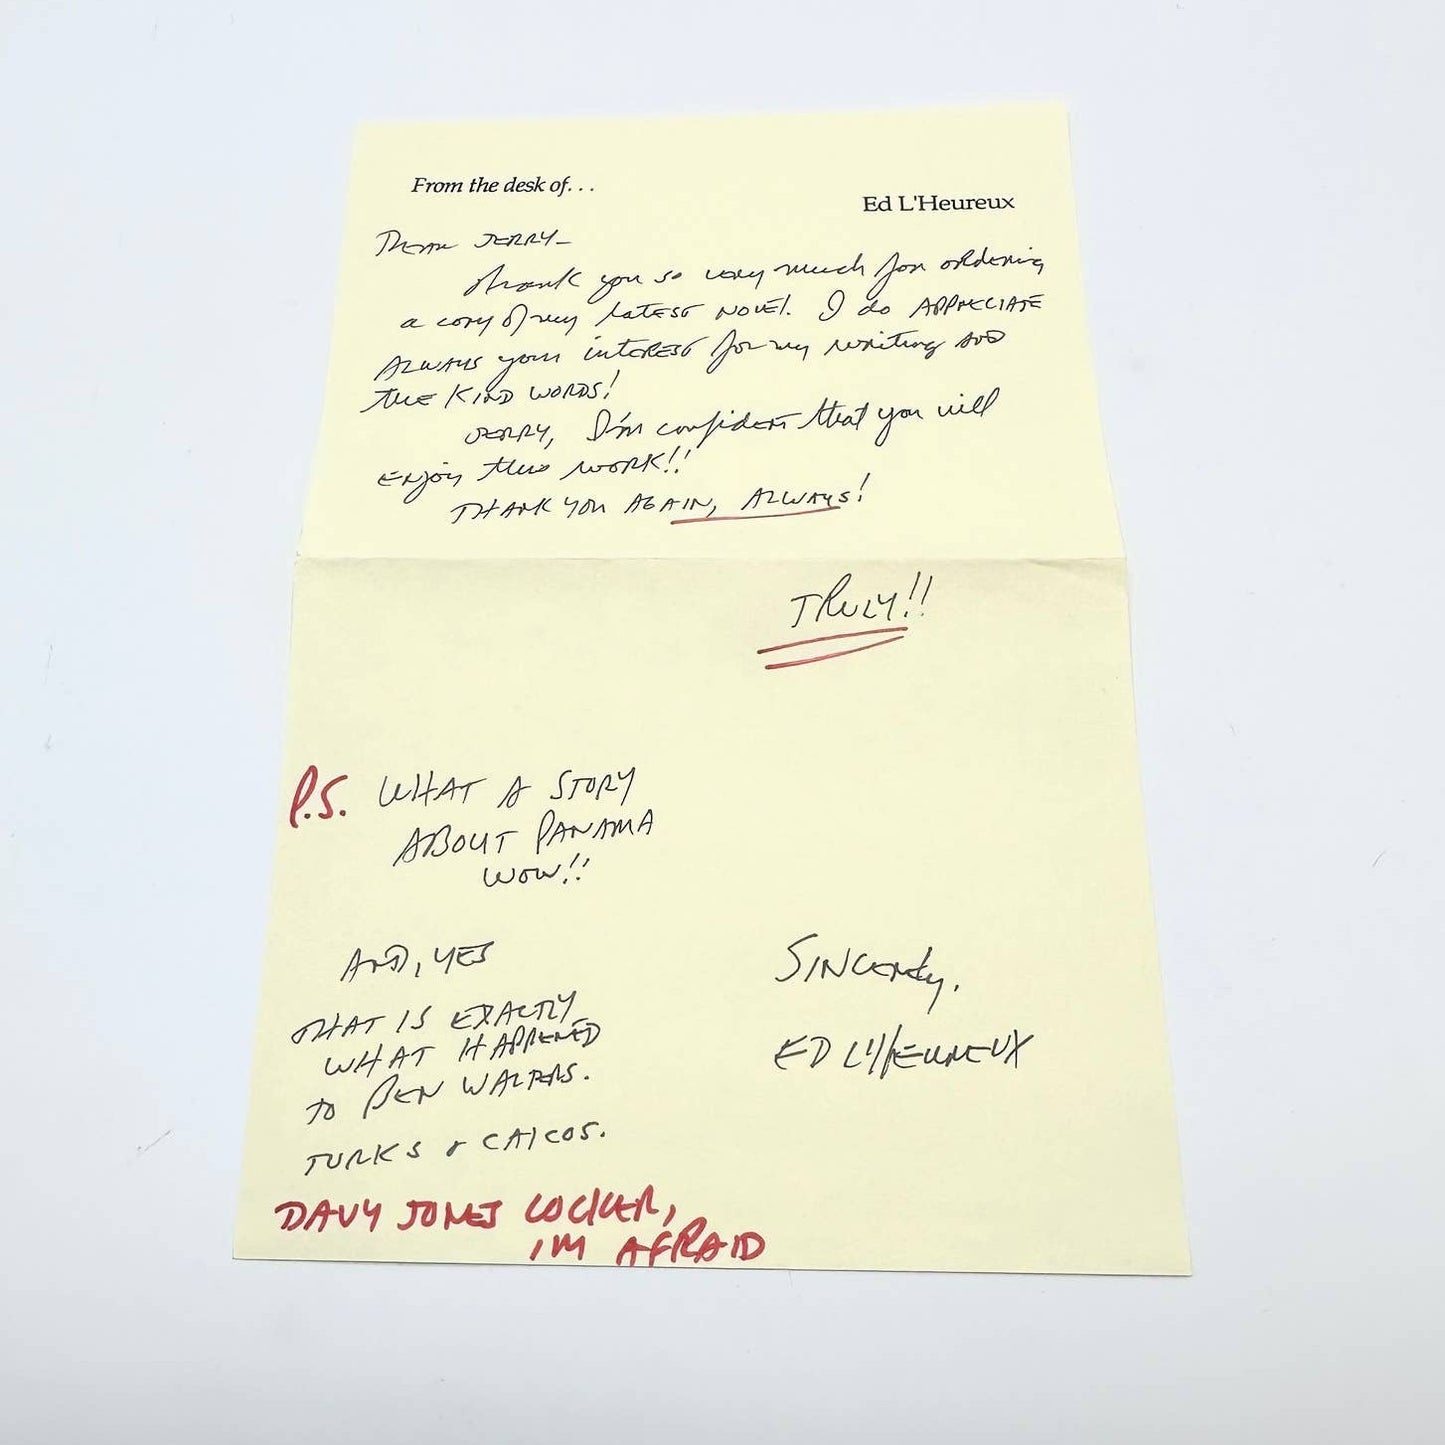 From the desk of. . .
Ed L'Heureux
Dear JERRY-
Thank you so very much for ordering
a copy of my latest novel. I do APPRECIATE
ALWAYS your interest for my writing AND
THE KIND WORDS!
JERRY, I'm confident that you will
ENJOY this WORK!!
THANK YOU AGAIN, ALWAYS!
TRULY!!
P.S. WHAT A STORY
ABOUT PANAMA
WOW!!
AND, YES
THAT IS EXACTLY
WHAT HAPPENED
TO BEN WALTERS.
TURKS & CAICOS.
DAVY JONES LOCKER,
I'M AFRAID
SINCERELY,
ED L'HEUREUX